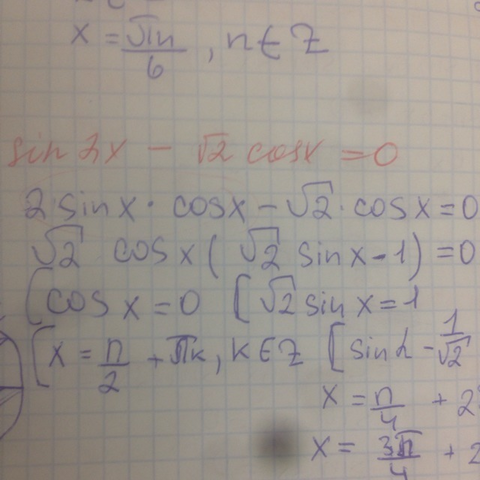 x = πn/6 , n ∈ Z
sin 2x − √2 cosx = 0
2 sinx · cosx − √2 · cosx = 0
√2 cosx ( √2 sinx − 1) = 0
[ cosx = 0 [ √2 sinx = 1
[ x = π/2 + πk, k ∈ Z [ sin2 − 1/√2
x = π/4 + 2
x = 3π/4 + 2